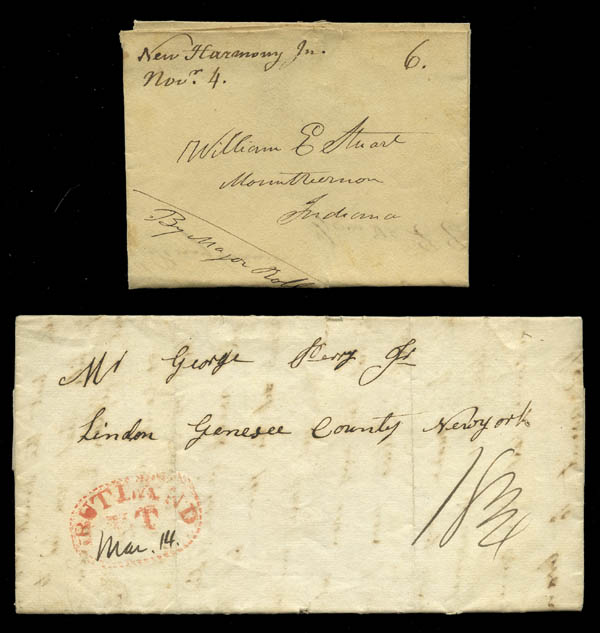 New Harmony In. 6.
Novr. 4.
William E Stuart
Mountvernon
Indiana
By Major
Mr George Perry Jr
Lindon Genesee County Newyork
RUTLAND
VT
Mar. 14.
18 3/4